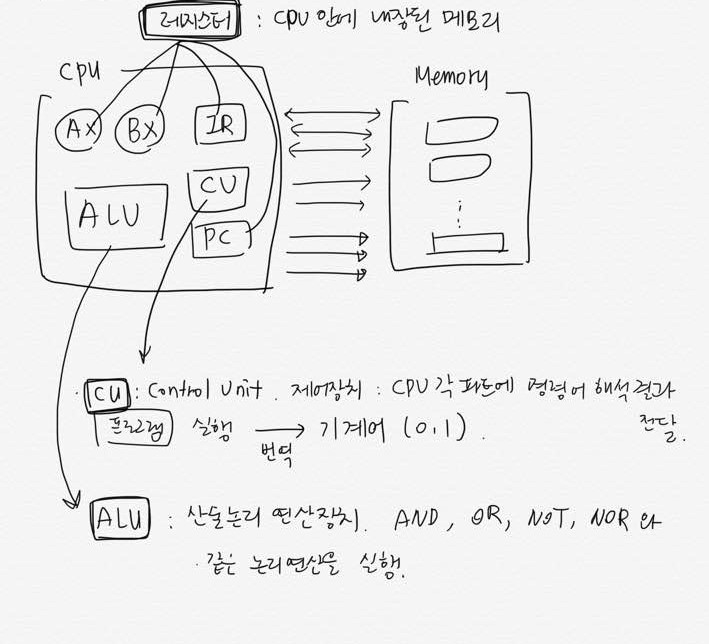 레지스터 : CPU 안에 내장된 메모리
CPU
Memory
AX BX IR
CU
ALU
PC
CU : Control Unit. 제어장치 : CPU 각 파트에 명령어 해석결과
전달.
프로그램 실행 → 기계어 (0,1).
번역
ALU : 산술논리 연산장치. AND, OR, NOT, NOR 와
같은 논리연산을 실행.